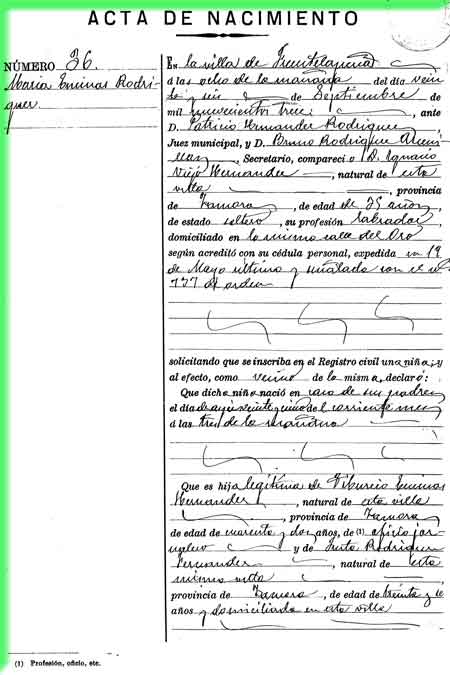 ACTA DE NACIMIENTO
NÚMERO 36.
Maria Rodri-
guez.
En la villa de
a las ocho de la mañana del día vein
te y seis de Septiembre de
mil novecientos trece, ante
D. Patricio Hernandez Rodriguez
Juez municipal, y D. Bruno Rodriguez
, Secretario, compareció D. Ignacio
Hernandez, natural de esta
villa, provincia
de Zamora, de edad de 75 años,
de estado soltero, su profesión labrador,
domiciliado en la misma calle del Oro
según acreditó con su cédula personal, expedida en 19
de Mayo ultimo y señalada con el nº
777 de orden
solicitando que se inscriba en el Registro civil una niña; y
al efecto, como vecino de la misma, declaró:
Que dicha niña nació en casa de sus padres
el día de ayer veinte y cinco del corriente mes
a las tres de la mañana
Que es hija legitima de Tiburcio
Hernandez, natural de esta villa
, provincia de Zamora
de edad de cuarenta y dos años, de (1) oficio jor-
nalero y de Rodriguez
Fernandez, natural de esta
misma villa
provincia de Zamora, de edad de treinta y
años y domiciliada en esta villa
(1) Profesión, oficio, etc.